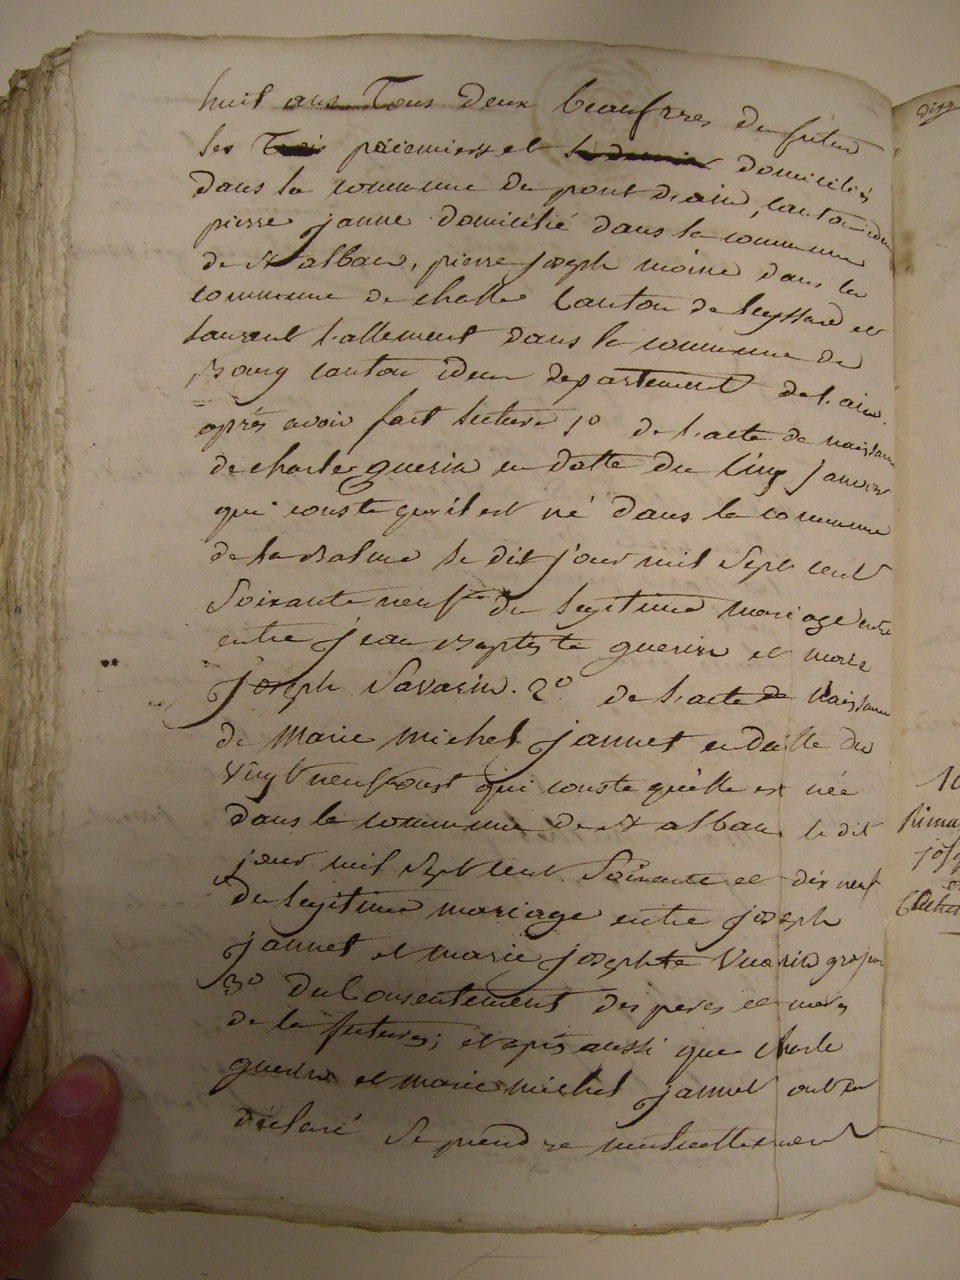 huit ans Tous deux beaufrres du futur
les Trois premiers et le dernier domiciliés
dans la commune de pont d'ain, canton idem
pierre janne domicilié dans la commune
de st alban, pierre joseph moine dans la
commune de challe Canton de leyssard et
laurent lallement dans la commune de
Bourg canton idem departement de l'ain.
après avoir fait lecture 1º de l'acte de naissance
de charle guerin en datte du Cinq janvier
qui conste qu'il est né dans la commune
de la Balme le dit jour mil Sept cent
Soixante neuf du legitime mariage entre
entre jean Baptiste guerin et marie
joseph Savarin. 2º de l'acte de Naissance
de Marie Michel jannet en datte du
Vingt neuf aoust qui conste quelle est née
dans la commune de st alban le dit
jour mil Sept cent Soixante et dix neuf
du legitime mariage entre joseph
jannet et marie josephte Vuarin
3º du Consentement des peres et meres
de la future; et après aussi que charle
guerin et marie michel jannet ont eu
déclaré Se prendre mutuellement
10
joseph